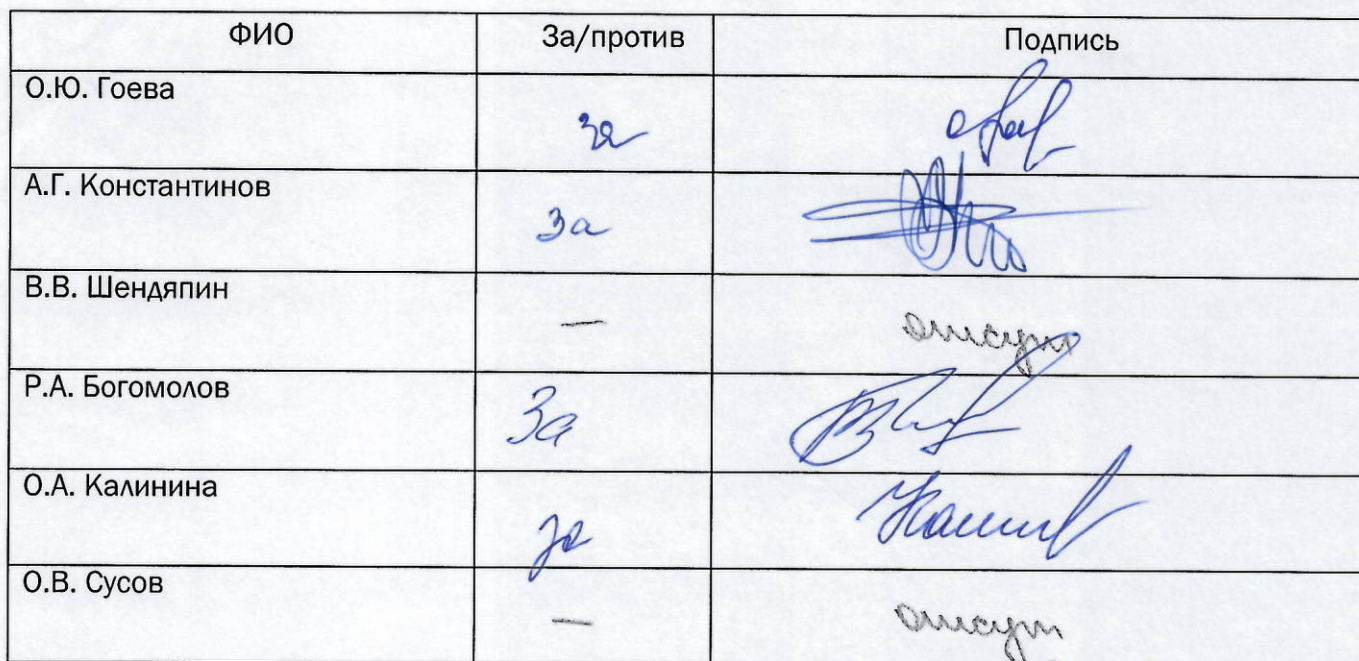 ФИО За/против Подпись
О.Ю. Гоева
за
А.Г. Константинов
За
В.В. Шендяпин
— отсут
Р.А. Богомолов
За
О.А. Калинина
за
О.В. Сусов
— отсут